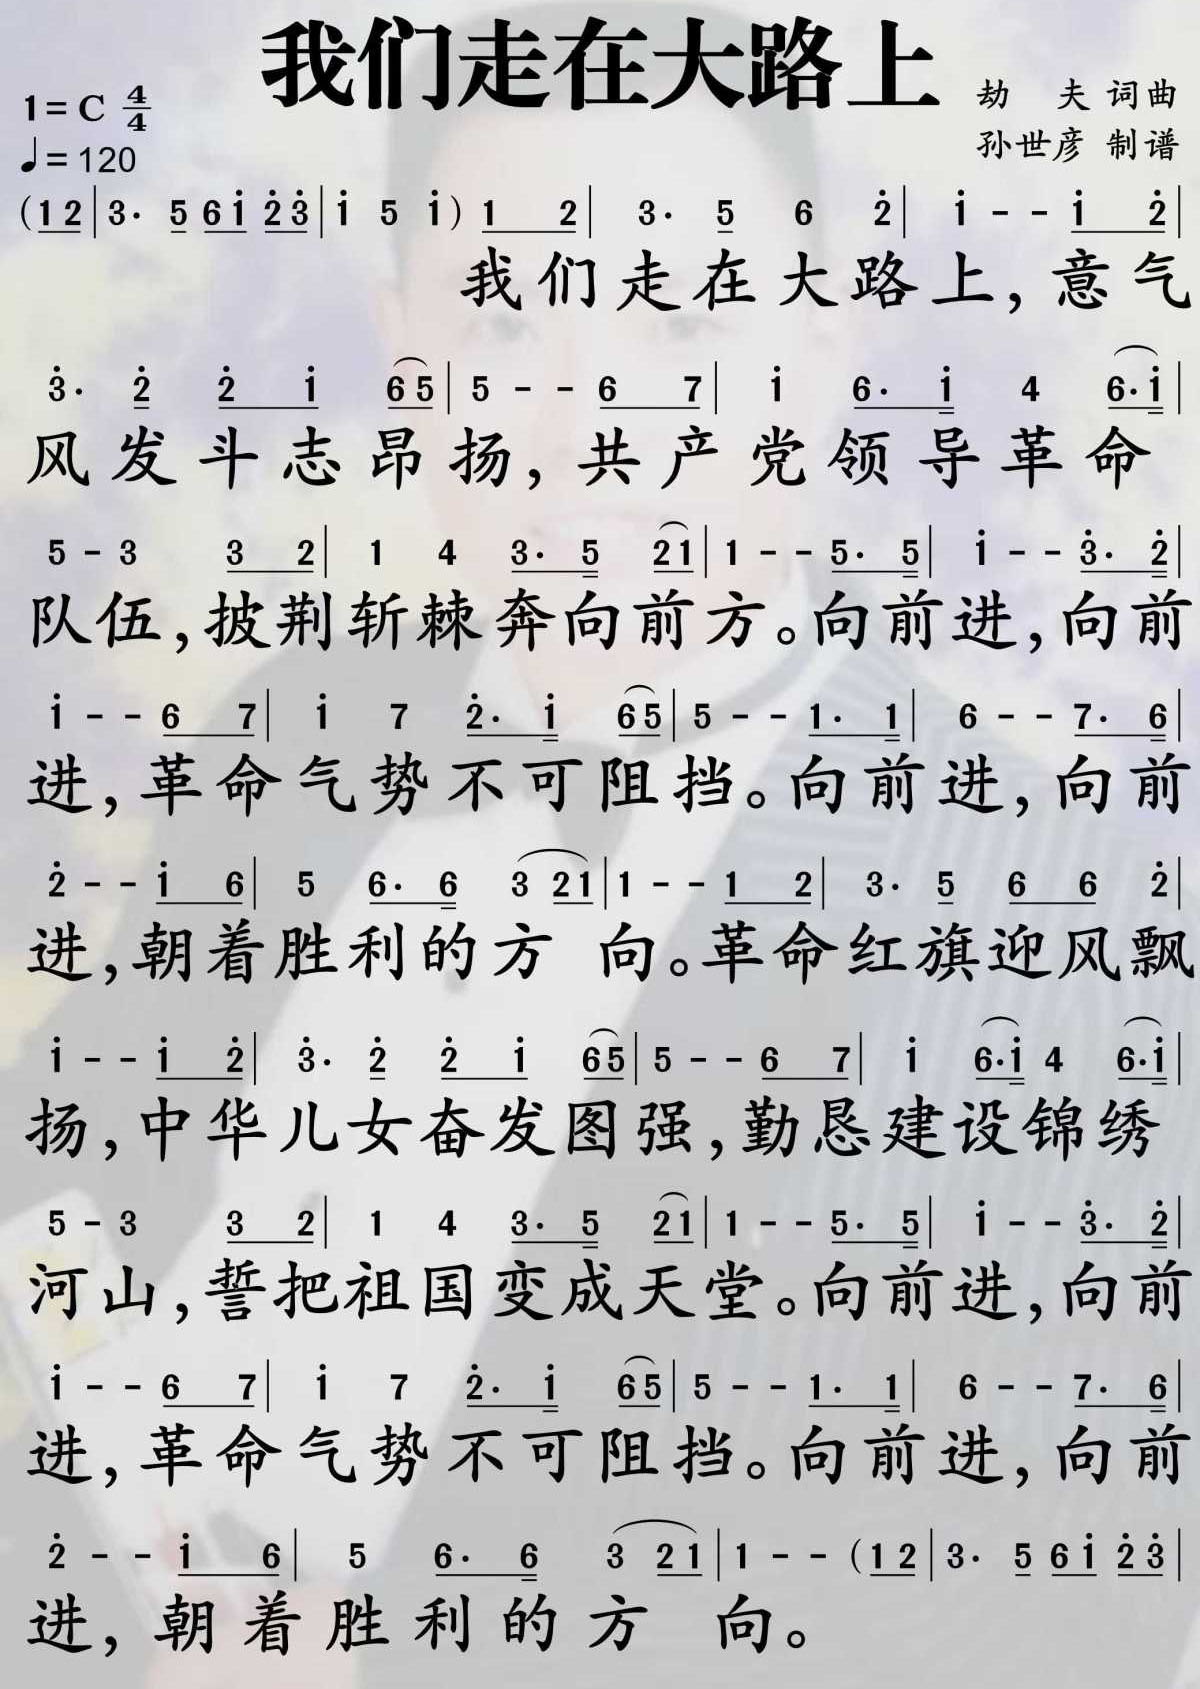 我们走在大路上
1=C 4/4
劫 夫 词曲
♩=120
孙世彦 制谱
(1 2 | 3· 5 6 i̇ 2̇ 3̇ | i̇ 5 i̇ ) 1 2 | 3· 5 6 2̇ | i̇ - - i̇ 2̇ |
我们走在大路上,意气
3̇· 2̇ 2̇ i̇ 6 5 | 5 - - 6 7 | i̇ 6· i̇ 4 6· i̇ |
风发斗志昂扬,共产党领导革命
5 - 3 3 2 | 1 4 3· 5 2 1 | 1 - - 5· 5 | i̇ - - 3̇· 2̇ |
队伍,披荆斩棘奔向前方。向前进,向前
i̇ - - 6 7 | i̇ 7 2̇· i̇ 6 5 | 5 - - 1· 1 | 6 - - 7· 6 |
进,革命气势不可阻挡。向前进,向前
2̇ - - i̇ 6 | 5 6· 6 3 2 1 | 1 - - 1 2 | 3· 5 6 6 2̇ |
进,朝着胜利的方 向。革命红旗迎风飘
i̇ - - i̇ 2̇ | 3̇· 2̇ 2̇ i̇ 6 5 | 5 - - 6 7 | i̇ 6· i̇ 4 6· i̇ |
扬,中华儿女奋发图强,勤恳建设锦绣
5 - 3 3 2 | 1 4 3· 5 2 1 | 1 - - 5· 5 | i̇ - - 3̇· 2̇ |
河山,誓把祖国变成天堂。向前进,向前
i̇ - - 6 7 | i̇ 7 2̇· i̇ 6 5 | 5 - - 1· 1 | 6 - - 7· 6 |
进,革命气势不可阻挡。向前进,向前
2̇ - - i̇ 6 | 5 6· 6 3 2 1 | 1 - - (1 2 | 3· 5 6 i̇ 2̇ 3̇ |
进,朝着胜利的方 向。